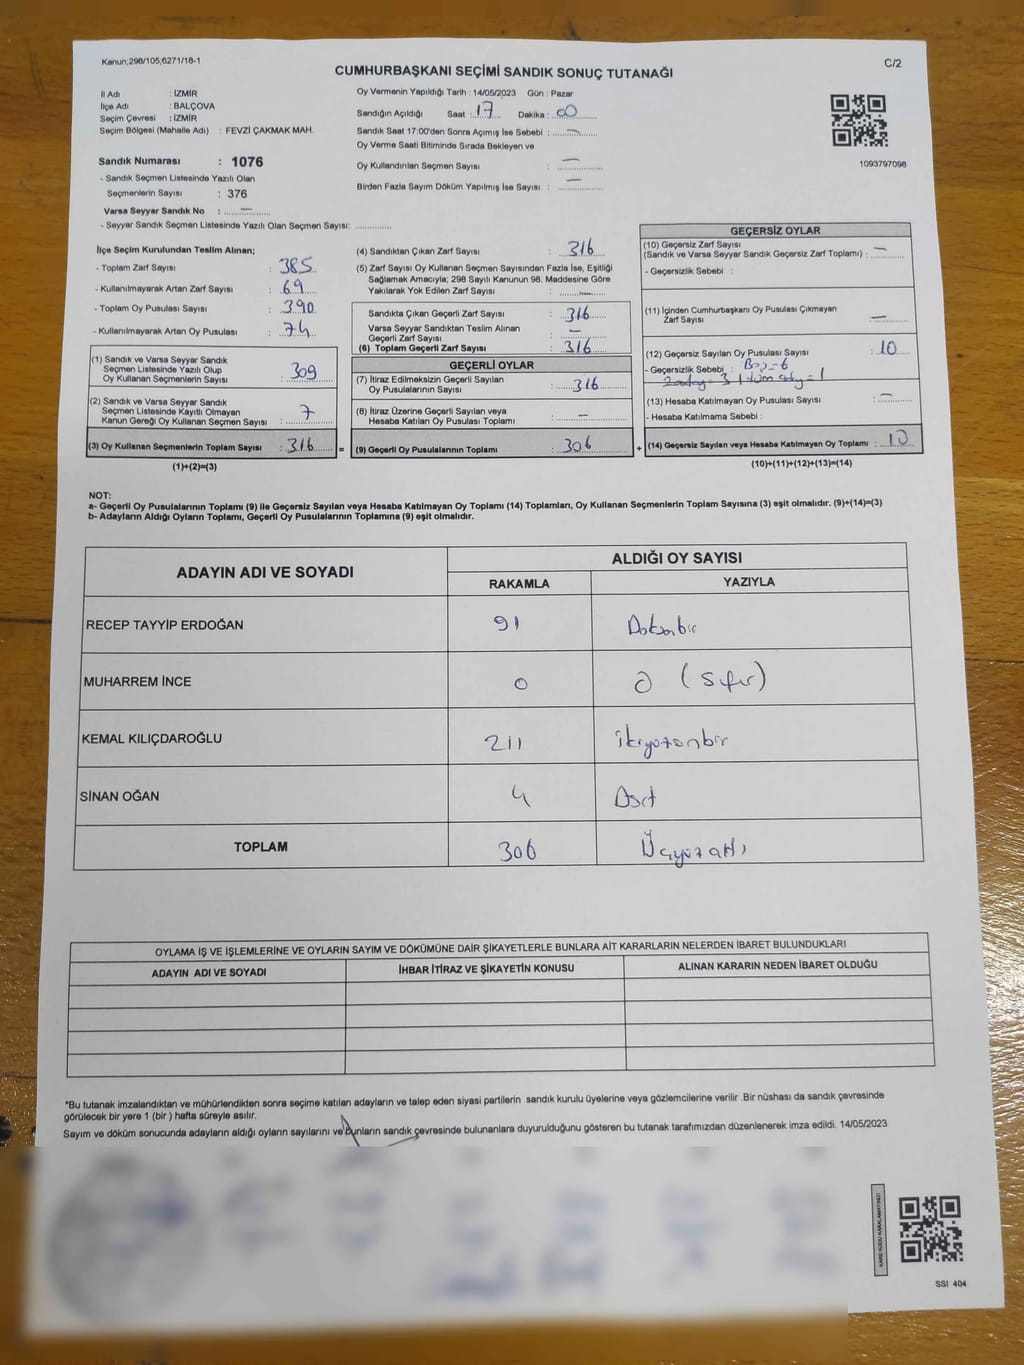 Kanun;298/105,6271/18-1
C/2
CUMHURBAŞKANI SEÇİMİ SANDIK SONUÇ TUTANAĞI
İl Adı : İZMİR
İlçe Adı : BALÇOVA
Seçim Çevresi : İZMİR
Seçim Bölgesi (Mahalle Adı) : FEVZİ ÇAKMAK MAH.
Sandık Numarası : 1076
- Sandık Seçmen Listesinde Yazılı Olan
Seçmenlerin Sayısı : 376
Varsa Seyyar Sandık No : —
- Seyyar Sandık Seçmen Listesinde Yazılı Olan Seçmen Sayısı:
Oy Vermenin Yapıldığı Tarih : 14/05/2023 Gün : Pazar
Sandığın Açıldığı Saat : 17 Dakika : 00
Sandık Saat 17:00'den Sonra Açılmış İse Sebebi : —
Oy Verme Saati Bitiminde Sırada Bekleyen ve
Oy Kullandırılan Seçmen Sayısı : —
Birden Fazla Sayım Döküm Yapılmış İse Sayısı : —
1093797098
İlçe Seçim Kurulundan Teslim Alınan;
- Toplam Zarf Sayısı : 385
- Kullanılmayarak Artan Zarf Sayısı : 69
- Toplam Oy Pusulası Sayısı : 390
- Kullanılmayarak Artan Oy Pusulası : 74
(1) Sandık ve Varsa Seyyar Sandık
Seçmen Listesinde Yazılı Olup
Oy Kullanan Seçmenlerin Sayısı : 309
(2) Sandık ve Varsa Seyyar Sandık
Seçmen Listesinde Kayıtlı Olmayan
Kanun Gereği Oy Kullanan Seçmen Sayısı : 7
(3) Oy Kullanan Seçmenlerin Toplam Sayısı : 316 =
(1)+(2)=(3)
(4) Sandıktan Çıkan Zarf Sayısı : 316
(5) Zarf Sayısı Oy Kullanan Seçmen Sayısından Fazla İse, Eşitliği
Sağlamak Amacıyla; 298 Sayılı Kanunun 98. Maddesine Göre
Yakılarak Yok Edilen Zarf Sayısı : —
Sandıkta Çıkan Geçerli Zarf Sayısı : 316
Varsa Seyyar Sandıktan Teslim Alınan
Geçerli Zarf Sayısı : —
(6) Toplam Geçerli Zarf Sayısı : 316
GEÇERLİ OYLAR
(7) İtiraz Edilmeksizin Geçerli Sayılan
Oy Pusulalarının Sayısı : 316
(8) İtiraz Üzerine Geçerli Sayılan veya
Hesaba Katılan Oy Pusulası Toplamı : —
(9) Geçerli Oy Pusulalarının Toplamı : 306 +
GEÇERSİZ OYLAR
(10) Geçersiz Zarf Sayısı
(Sandık ve Varsa Seyyar Sandık Geçersiz Zarf Toplamı) : —
- Geçersizlik Sebebi :
(11) İçinden Cumhurbaşkanı Oy Pusulası Çıkmayan
Zarf Sayısı : —
(12) Geçersiz Sayılan Oy Pusulası Sayısı : 10
- Geçersizlik Sebebi : Boş - 6
(13) Hesaba Katılmayan Oy Pusulası Sayısı : —
- Hesaba Katılmama Sebebi :
(14) Geçersiz Sayılan veya Hesaba Katılmayan Oy Toplamı : 10
(10)+(11)+(12)+(13)=(14)
NOT:
a- Geçerli Oy Pusulalarının Toplamı (9) ile Geçersiz Sayılan veya Hesaba Katılmayan Oy Toplamı (14) Toplamları, Oy Kullanan Seçmenlerin Toplam Sayısına (3) eşit olmalıdır. (9)+(14)=(3)
b- Adayların Aldığı Oyların Toplamı, Geçerli Oy Pusulalarının Toplamına (9) eşit olmalıdır.
ADAYIN ADI VE SOYADI ALDIĞI OY SAYISI
RAKAMLA YAZIYLA
RECEP TAYYİP ERDOĞAN 91 Doksanbir
MUHARREM İNCE 0 0 (sıfır)
KEMAL KILIÇDAROĞLU 211 ikiyüzonbir
SİNAN OĞAN 4 Dört
TOPLAM 306 Üçyüzaltı
OYLAMA İŞ VE İŞLEMLERİNE VE OYLARIN SAYIM VE DÖKÜMÜNE DAİR ŞİKAYETLERLE BUNLARA AİT KARARLARIN NELERDEN İBARET BULUNDUKLARI
ADAYIN ADI VE SOYADI İHBAR İTİRAZ VE ŞİKAYETİN KONUSU ALINAN KARARIN NEDEN İBARET OLDUĞU
*Bu tutanak imzalandıktan ve mühürlendikten sonra seçime katılan adayların ve talep eden siyasi partilerin sandık kurulu üyelerine veya gözlemcilerine verilir .Bir nüshası da sandık çevresinde
görülecek bir yere 1 (bir ) hafta süreyle asılır.
Sayım ve döküm sonucunda adayların aldığı oyların sayılarını ve bunların sandık çevresinde bulunanlara duyurulduğunu gösteren bu tutanak tarafımızdan düzenlenerek imza edildi. 14/05/2023
SSI 404